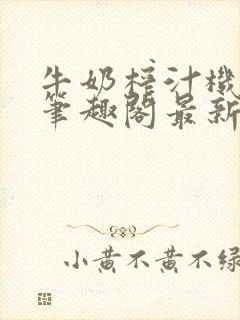 牛奶榨汁機
筆趣閣最新
小黄不黄不绿